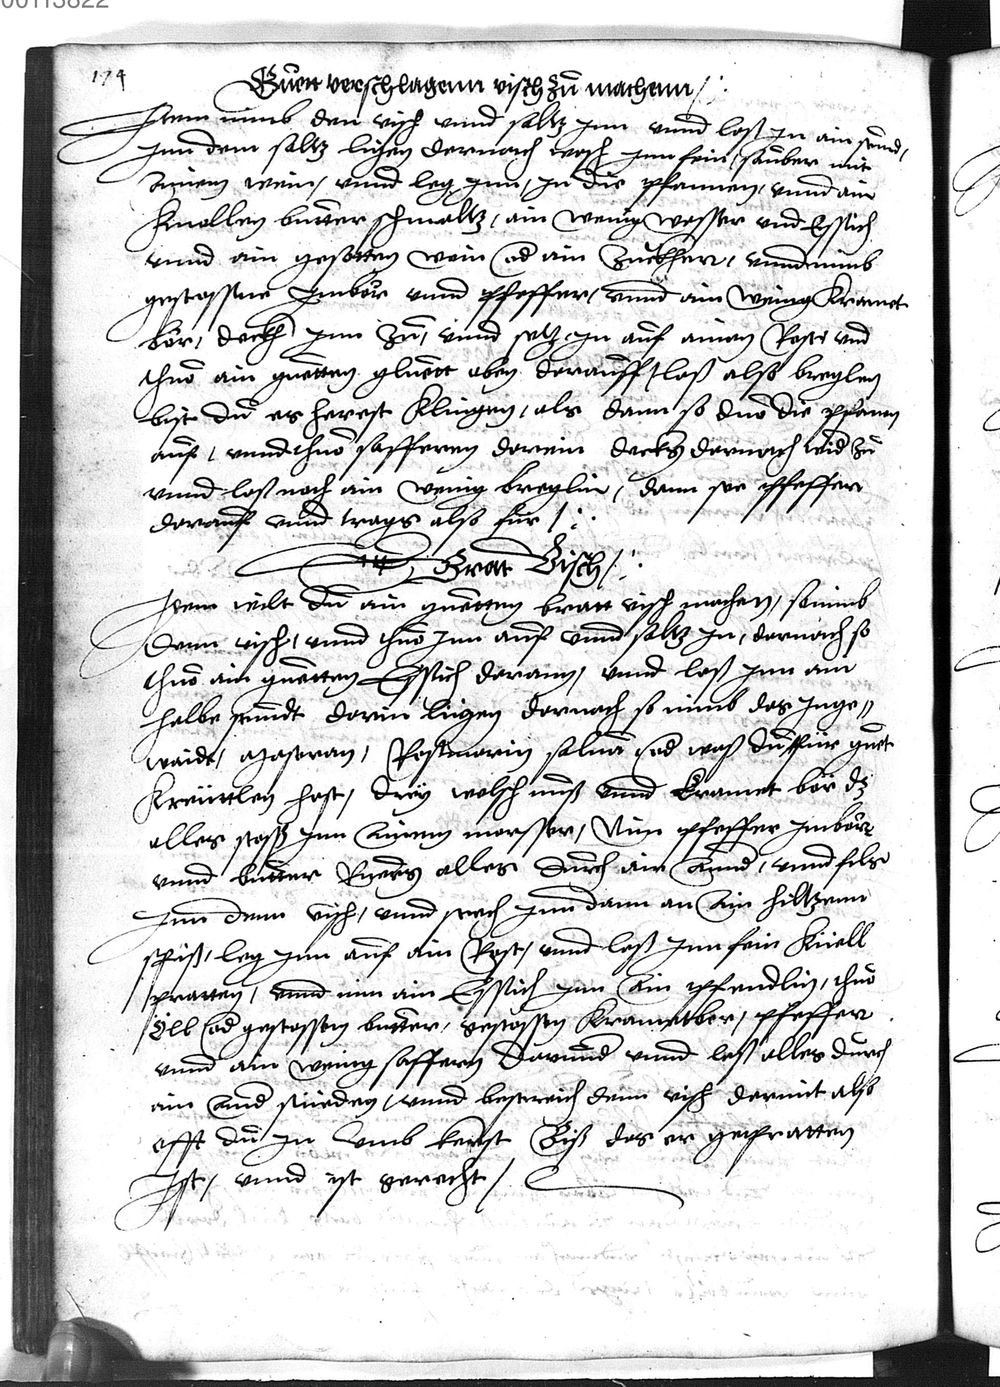 00113822
174
Guett verschlagenn visch zu machenn /:
Item nimb den visch vnnd saltz Inn vnnd laß In ain stund,
Inn dem saltz ligen dernach wasch Inn fein sauber mit
ainem wein, vnnd leg Inn, In die pfannen, vnnd ain
Knollen butter schmaltz, ain wenig wasser vnd Essich
vnnd ain gesotten wein od ain Zuckher, vnnd nimb
gestossne Imber vnnd pfeffer, vnnd ain wenig Kramet
ber, deckh Inn zu, vnnd setz In auf ainen Rost vnd
thuo ain guetten gluett oben darauff, laß also breglen
bist du es herest Klingen, als dann so duo die pfannen
auf, vnnd thuo saffereny darein decks darnach wid zu
vnnd laß noch ain wenig breglin, dann see pfeffer
darauf vnnd trags also für /:
Bratt Visch /:
Item wilt du ain guetten bratt visch machen, so nimb
denn visch, vnnd thuo Inn auf vnnd saltz In, darnach so
thuo ain guetten Essich daran, vnnd laß Inn ain
halbe stundt darin ligen darnach so nimb das Inge//
waide, maseran, Rosmarin salua od waß du für guet
Kreuttlen hast, drey welsch nuß vnnd Kramet bör dz
alles stoß Inn ainem morsser, Nim pfeffer Imber
vnnd butter Ruers alles durch ain annd, vnnd fils
Inn denn visch, vnnd stech Inn dann an ain hiltzenn
spiß, leg Inn auf ain Rost, vnnd laß Inn fein Küell
pratten, vnnd nim ain Essich Inn ain pfendlin, thuo
Öll od gestossen butter, gestossen Krametber, pfeffer
vnnd ain wenig saffern darunnd vnnd laß alles durch
ain annd sieden, vnnd bestreich denn visch darmit also
offt du In vmb kerst Biß das er gepratten
Ist, vnnd ist gerecht /